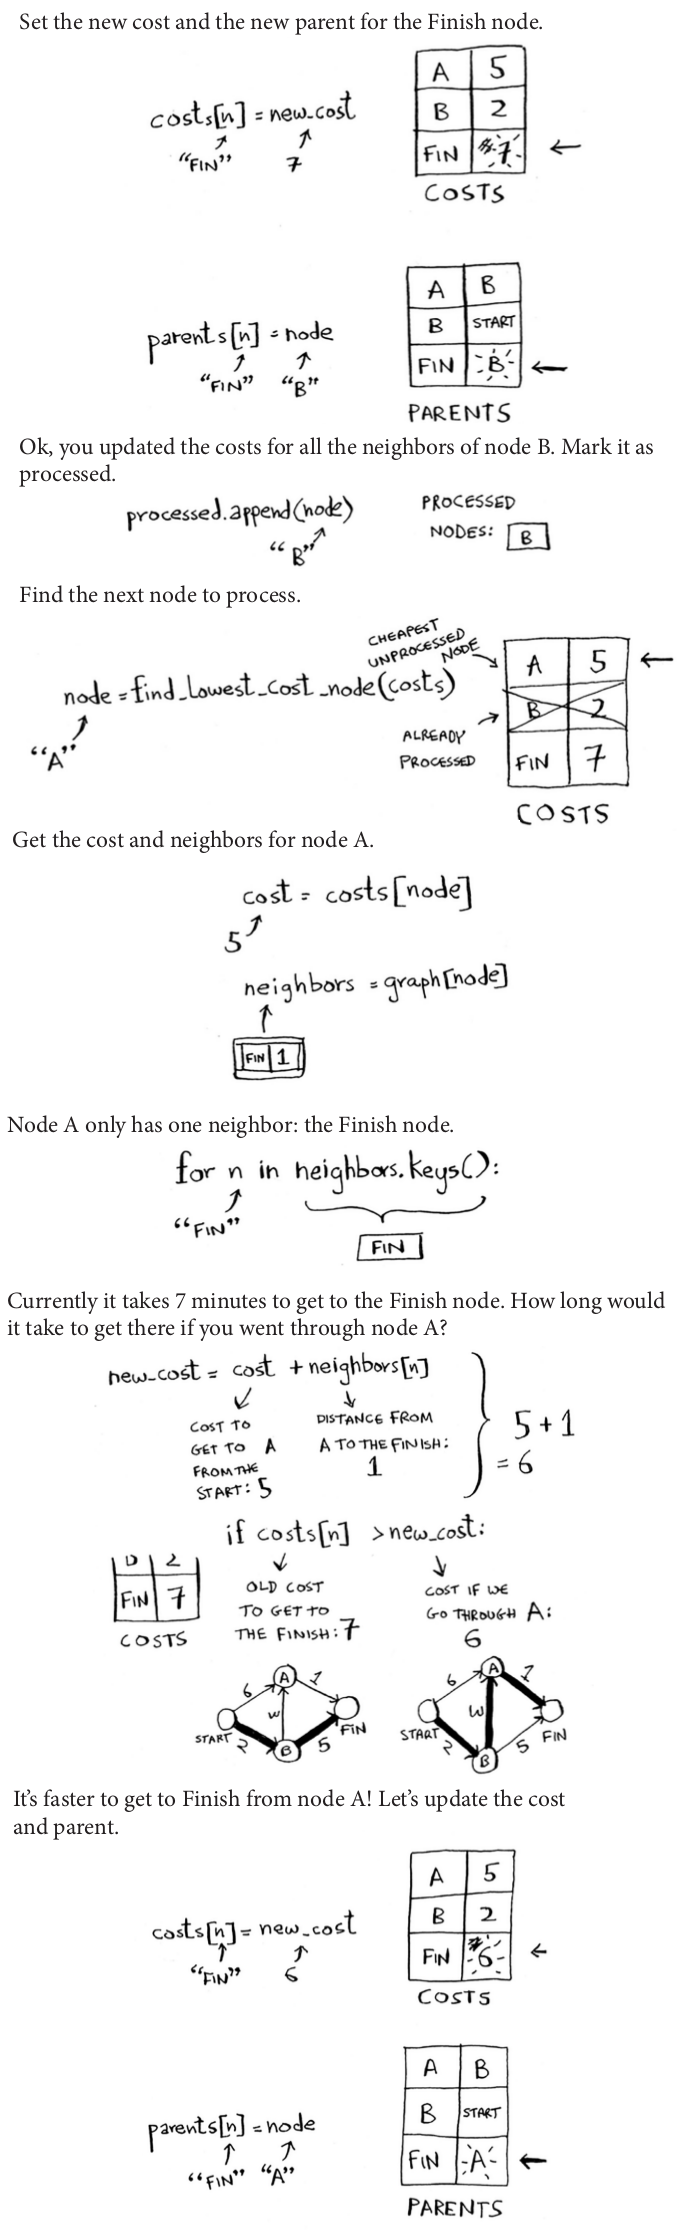 Set the new cost and the new parent for the Finish node.
A 5
costs[n] = new_cost
B 2
"FIN" 7
FIN 7
COSTS
A B
parents[n] = node
B START
"FIN" "B"
FIN B
PARENTS
Ok, you updated the costs for all the neighbors of node B. Mark it as
processed.
processed.append(node)
"B"
PROCESSED
NODES: B
Find the next node to process.
CHEAPEST
UNPROCESSED
NODE
node = find_lowest_cost_node(costs)
"A"
ALREADY
PROCESSED
A 5
B 2
FIN 7
COSTS
Get the cost and neighbors for node A.
cost = costs[node]
5
neighbors = graph[node]
FIN 1
Node A only has one neighbor: the Finish node.
for n in neighbors.keys():
"FIN"
FIN
Currently it takes 7 minutes to get to the Finish node. How long would
it take to get there if you went through node A?
new_cost = cost + neighbors[n]
COST TO
GET TO A
FROM THE
START: 5
DISTANCE FROM
A TO THE FINISH:
1
5 + 1
= 6
if costs[n] > new_cost:
2
FIN 7
COSTS
OLD COST
TO GET TO
THE FINISH: 7
COST IF WE
GO THROUGH A:
6
6 A 1
START 2 B 5 FIN
6 A 1
START 2 B 5 FIN
It's faster to get to Finish from node A! Let's update the cost
and parent.
A 5
costs[n] = new_cost
B 2
"FIN" 6
FIN 6
COSTS
A B
parents[n] = node
B START
"FIN" "A"
FIN A
PARENTS